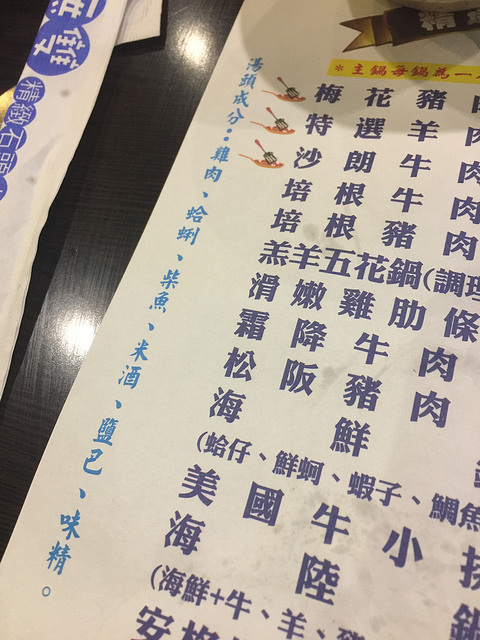 無雙
精緻石頭
精
*主鍋每鍋為一
梅花豬肉
特選羊肉
沙朗牛肉
培根牛肉
培根豬肉
羔羊五花鍋(調理
滑嫩雞肋條
霜降牛肉
松阪豬肉
海鮮
(蛤仔、鮮蚵、蝦子、鯛魚
美國牛小排
海陸鍋
(海鮮+牛、羊、豬
安格
湯頭成分：雞肉、蛤蜊、柴魚、米酒、鹽巴、味精。